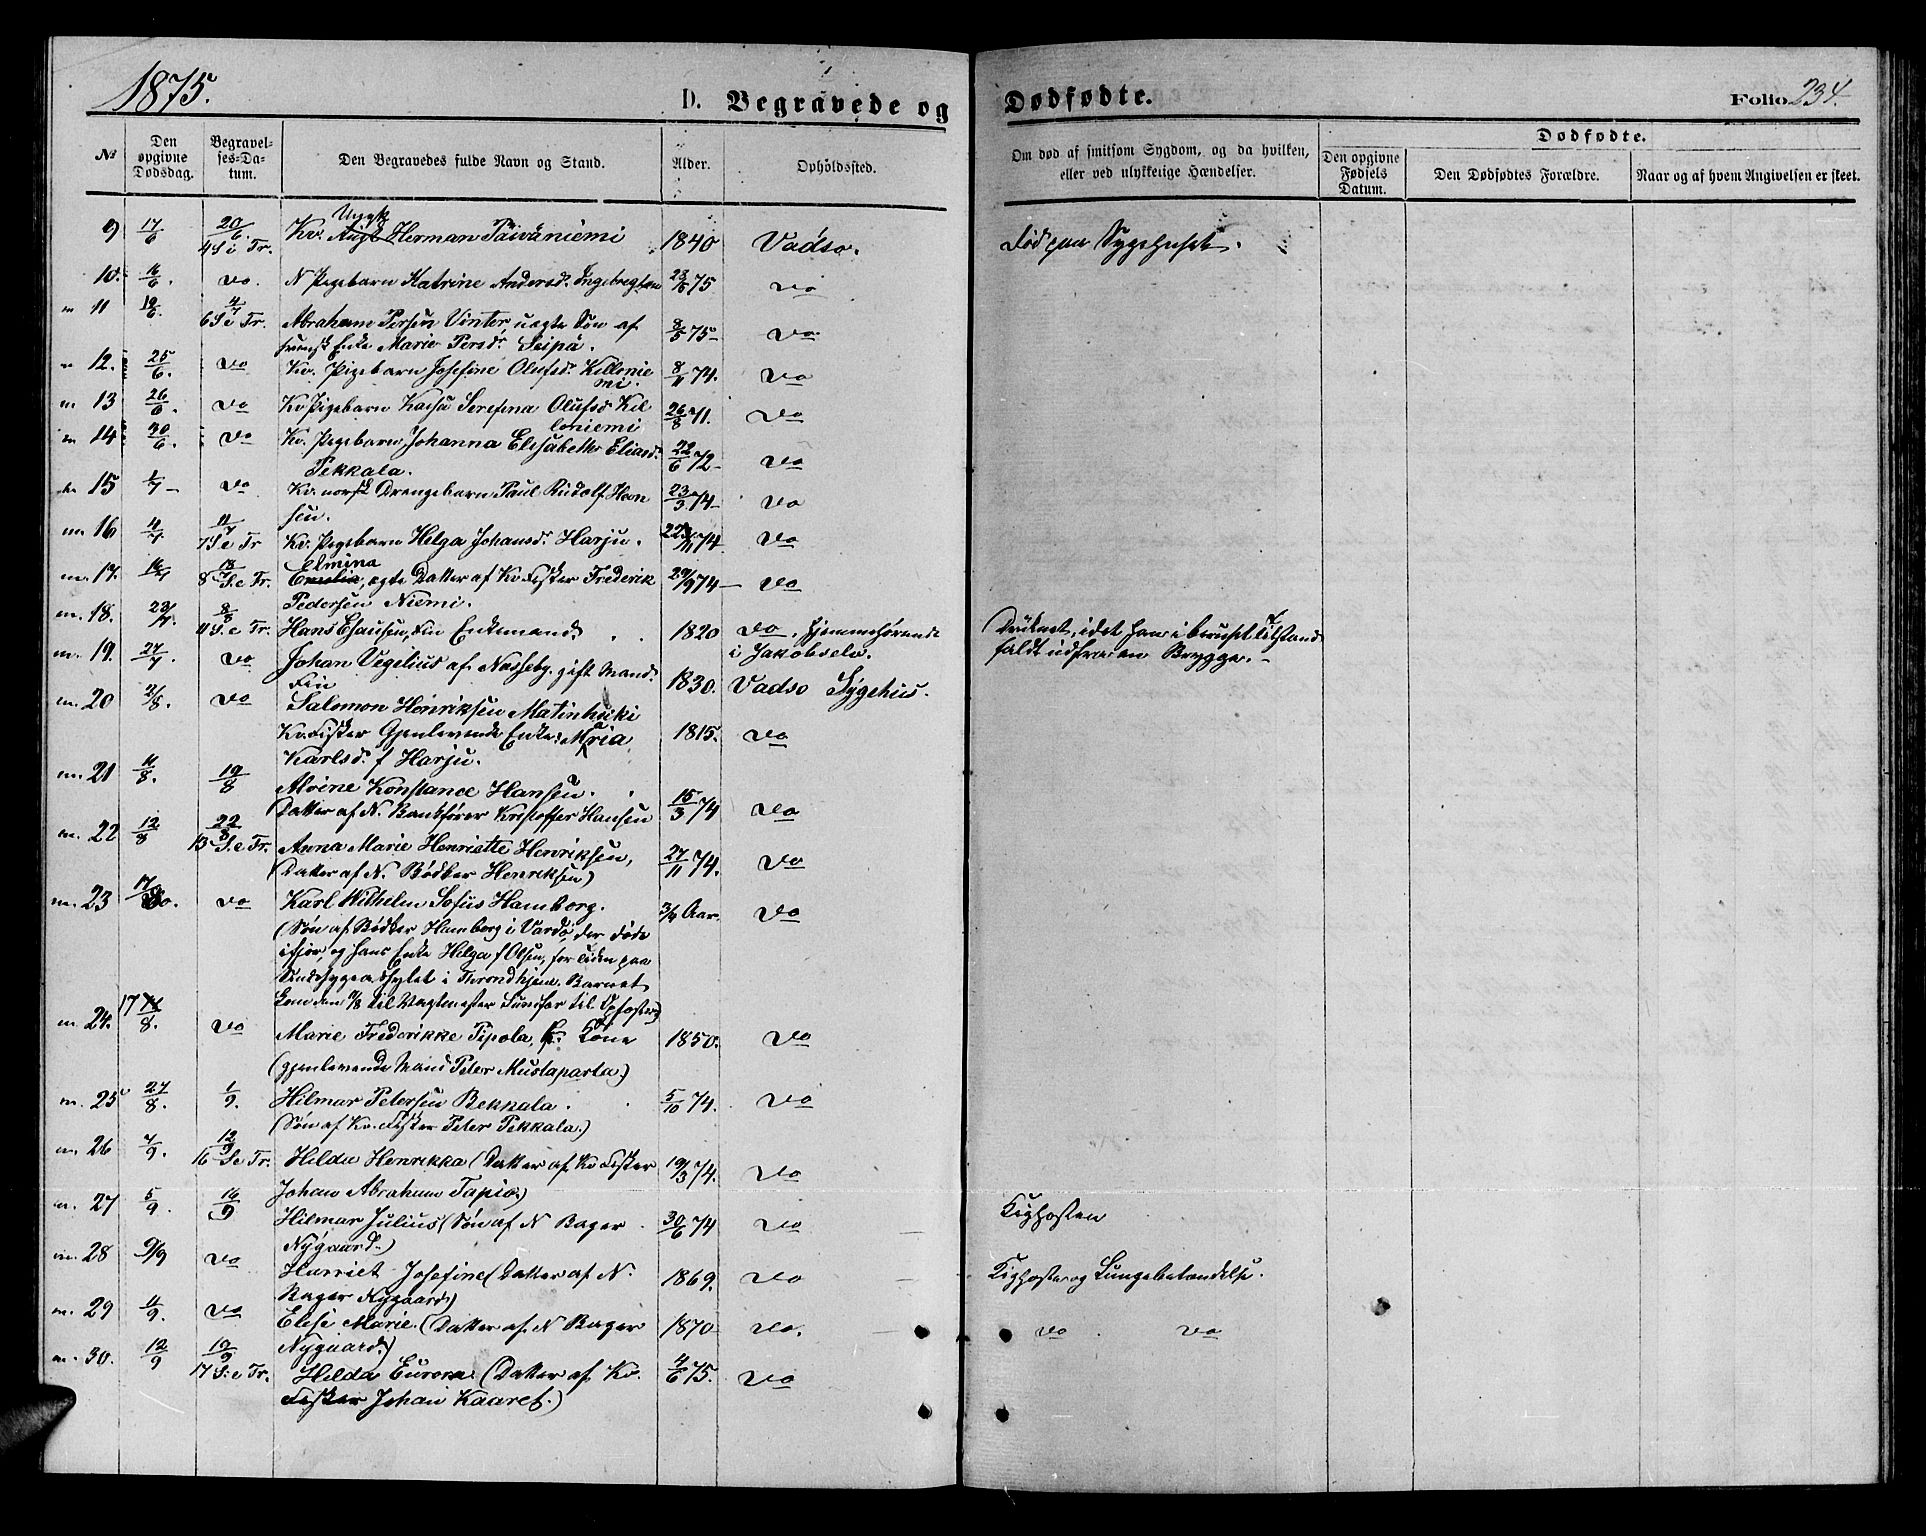 1875.
D. Begravede og
Dødfødte.
Folio 234.
№
Den opgivne Dødsdag.
Begravelses-Datum.
Den Begravedes fulde Navn og Stand.
Alder.
Opholdssted.
Om død af smitsom Sygdom, og da hvilken, eller ved ulykkelige Hændelser.
Dødfødte.
Den opgivne Fødsels Datum.
Den Dødfødtes Forældre.
Naar og af hvem Angivelsen er skeet.
9 17/6 20/6. Kv. Herman Päiväniemi 1840 Vadsø. Død paa Sygehuset.
4 S. e Tr.
10. 16/6. do. N Pigebarn Katrine Andersd. Ingebregtsen 23/6 75 do
11 19/6. 4/7 Abraham Persen Vinter, uægte Søn af 8/5 75 do
6 S e Tr. svensk Enke Marie Persd. Seipä.
12. 25/6. do Kv. Pigebarn Josefine Olufsd. Killonie 8/11 74. do
mi.
13 26/6. do Kv Pigebarn Kaisa Serefina Olufsd Kil 26/8 71. do
loniemi
14 30/6. do Kv. Pigebarn Johanna Elisabeth Eliasd. 22/6 72 do
Pekkala.
15 1/7 do Kv. norsk Drengebarn Paul Rudolf Han 23/3 74 do
sen.
16 4/7 11/7 Kv. Pigebarn Helga Johansd. Harju. 22/11 74 do
7 S e Tr
17. 14/7 18/7 Elmina
8 S. e Tr. Emelia, ægte Datter af Kv. Fisker Frederik 29/9 74 do
Pedersen Niemi.
18. 23/7. 8/8 Hans Esausen, Fin Enkemand 1820 do, hjemmehørende Druknet, idet han i beruset Tilstand
4 S. e Tr. i Jakobselv. faldt ud fra en Brygge.
19. 27/7. do Johan Vegelius af Næsseby. gift Mand. 1830. Vadsø Sygehus.
Fin
20 2/8. do Salomon Henriksen Matinheiki 1815. do
Kv. Fisker Gjenlevende Enke: Maria
Karlsd. f Harju.
21 11/8. 19/8 Alvine Konstance Hansen. 15/3 74 do
Datter af N. Bankfører Kristoffer Hansen
22 12/8 22/8 Anna Marie Henriette Henriksen, 27/11 74. do
13 S. e Tr. (Datter af N. Bødker Henriksen)
23 17/8. do Karl Wilhelm Sofus Hamborg. 3/4 Aar. do
(Søn af Bødker Hamborg i Vardø, der døde
ifjor, og hans Enke Helga f Olsen, for tiden paa
Sindssygeasylet i Throndhjem. Barnet
kom den til Vagtmester til Opfostr)
24. 17/8. do Marie Frederikke Pipola, Kv. Kone 1850. do
(gjenlevende Mand Peter Mustaparta.)
25 27/8. 1/9. Hilmar Petersen Bekkala. 5/10 74. do
(Søn af Kv. Fisker Peter Pekkala.)
26 7/9. 12/9 Hilda Henrikka (Datter af Kv Fisker 19/3 74. do
16 S e Tr. Johan Abraham Tapio.)
27 5/9. 16/9 Hilmar Julius (Søn af N Bager 30/6 74 do Kighosten
Nygaard.)
28 9/9 do Harriet Josefine (Datter af N. 1869. do Kighoste og Lungebetændelse.
Bager Nygaard)
29 11/9. do Elise Marie. (Datter af N Bager 1870 do. do do
Nygaard.)
30. 12/9 19/9 Hilda Eurora (Datter af Kv. 4/6 75. do
17 S. e Tr. Fisker Johan Kaaret.)